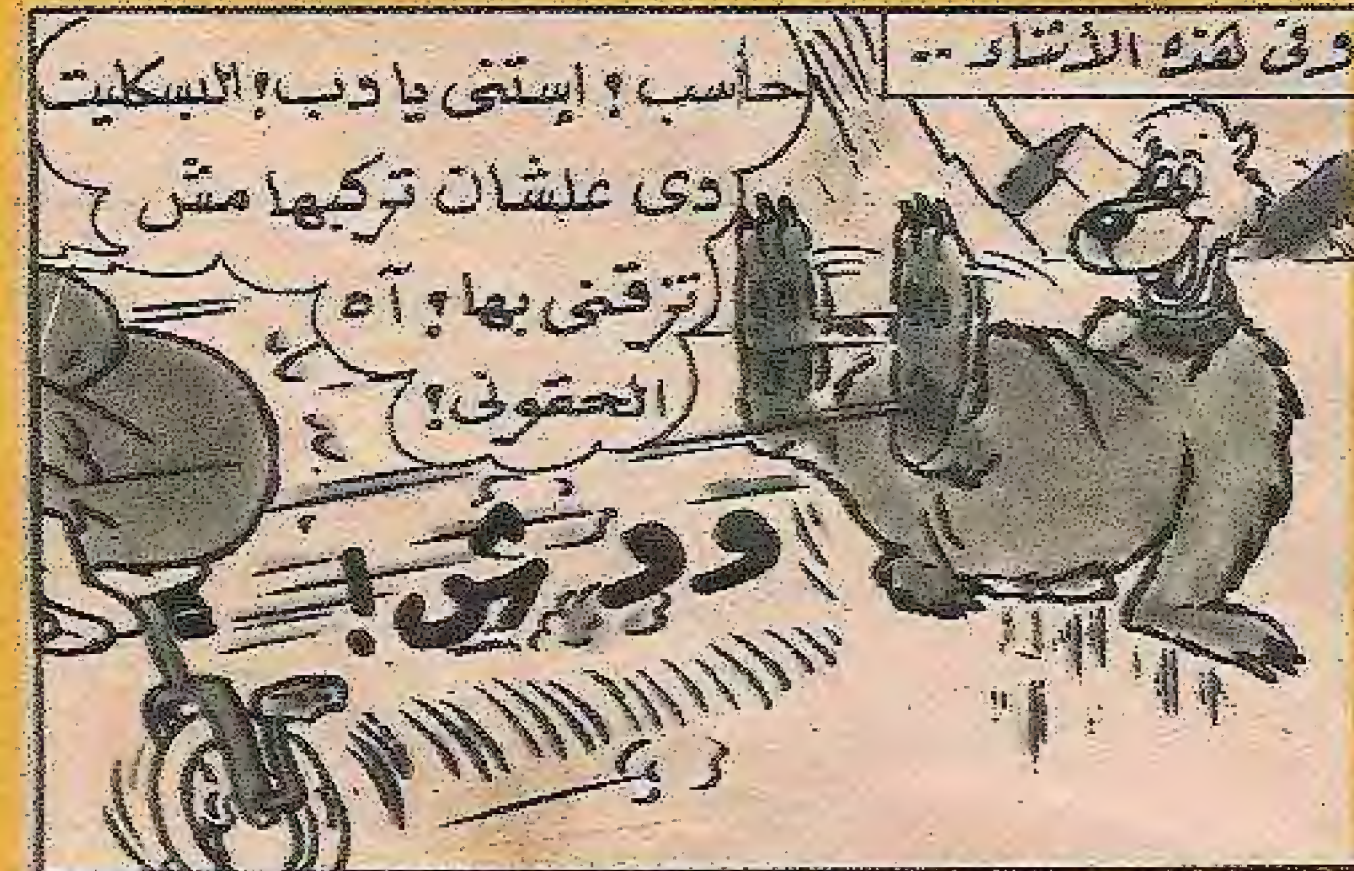 وفى هذه الأثناء ..
حاسب ! إستنى يا دب ! البسكليت
دى علشان تركبها مش
تزقنى بها ! آه
الحقونى !